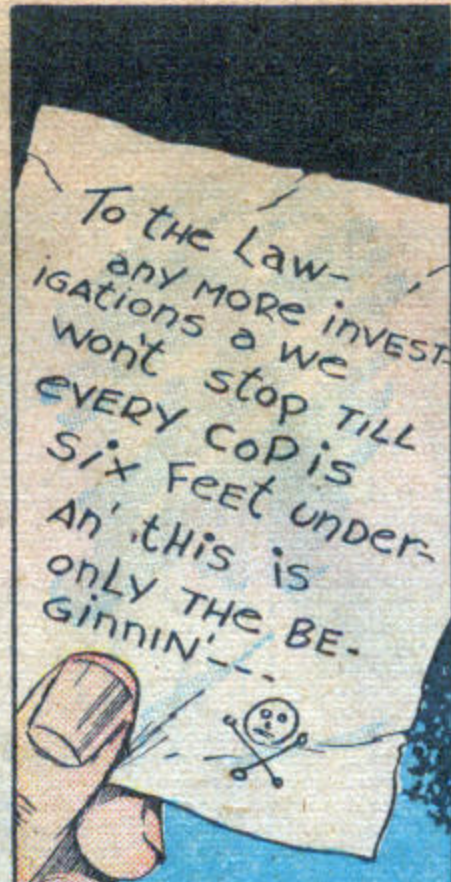 To tHe Law-
any MORe inVEST-
iGAtions a we
won't stop TiLL
eVERY CoP is
Six FeEt UnDer-
An' tHis is
onLY THe BE-
GinnIN'---